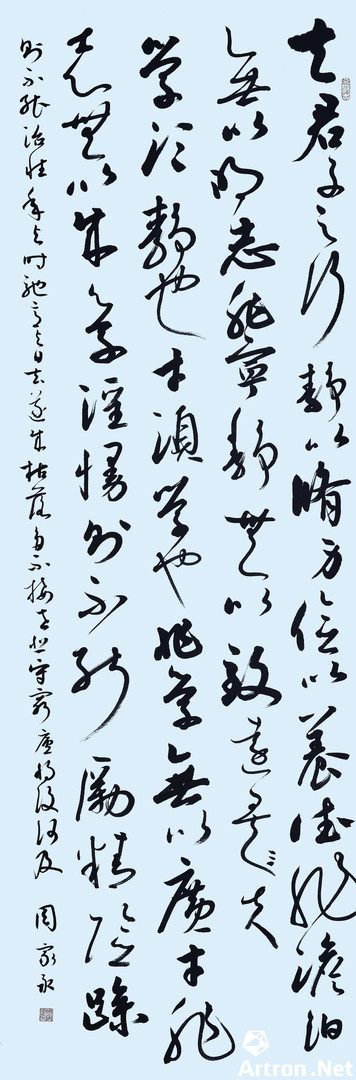 夫君子之行静以脩身俭以養德非澹泊
無以明志非寧静無以致遠夫
學須静也才須學也非學無以廣才非
志無以成學淫慢則不能勵精險躁
則不能治性年与時馳意与日去遂成枯落多不接世悲守窮廬将復何及 周家永
Artron.Net